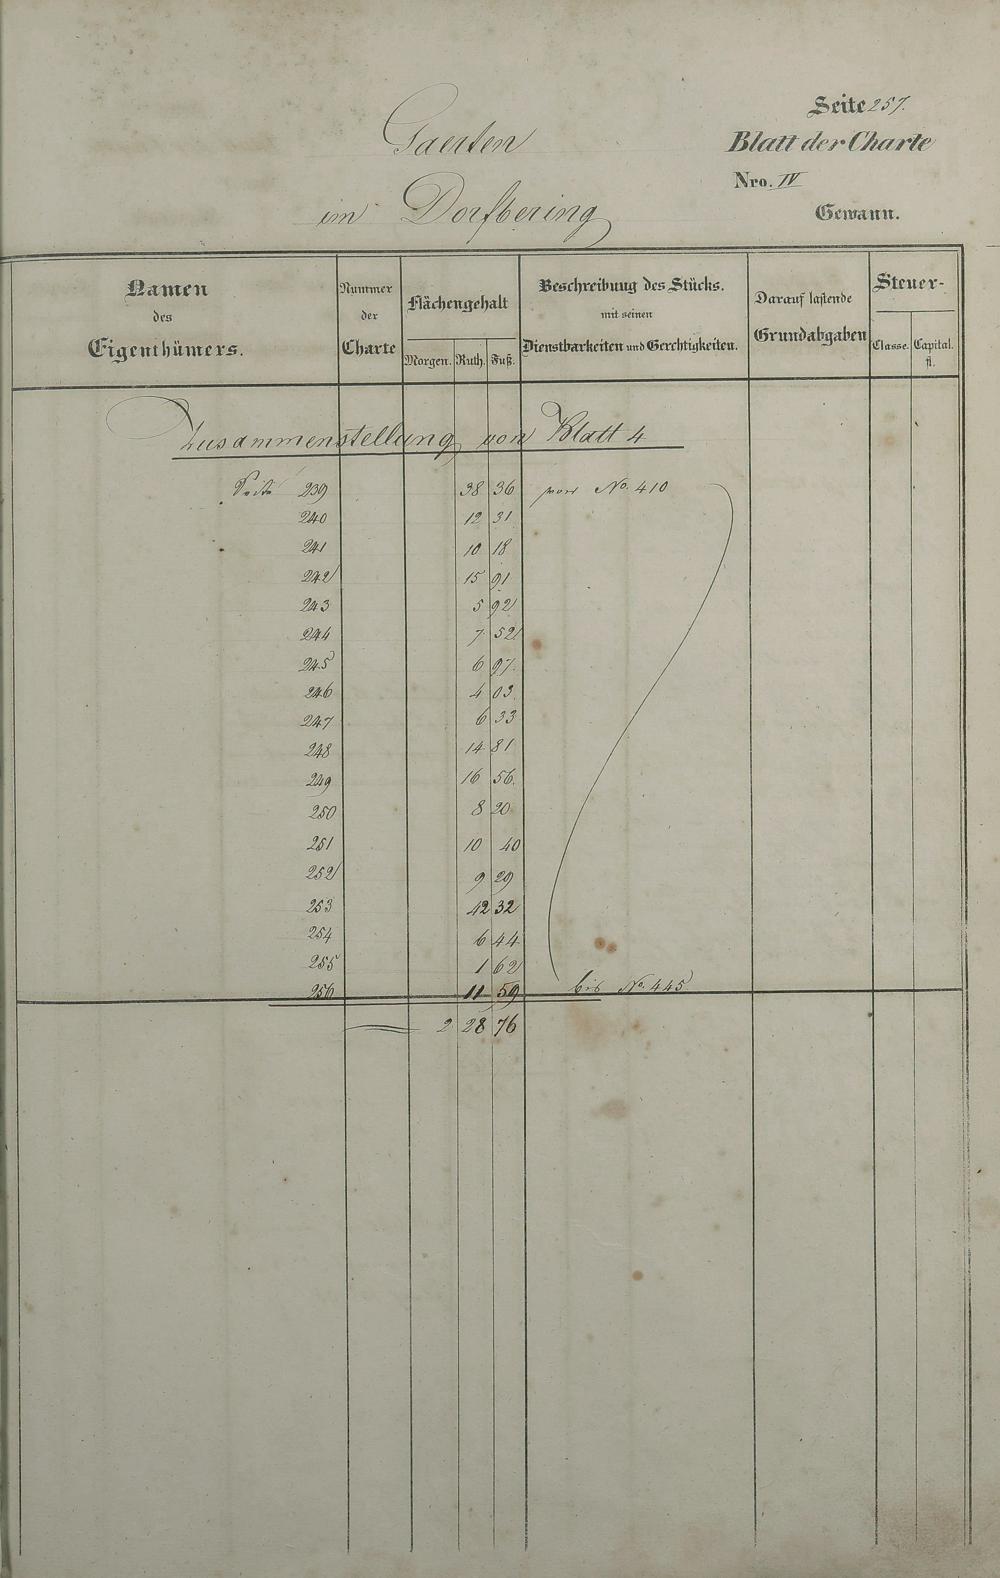 Seite 257.
Gaerten
Blatt der Charte
Nro. IV
im Dorfbering
Gewann.
Namen des Eigenthümers.
Nummer der Charte
Flächengehalt
Morgen. Ruth. Fuß.
Beschreibung des Stücks.
mit seinen
Dienstbarkeiten und Gerechtigkeiten.
Darauf lastende
Grundabgaben
Steuer-
Classe. Capital.
fl.
Zusammenstellung von Blatt 4
Seite 239 38 36 von No. 410
240 12 31
241 10 18
242 15 91
243 5 92
244 7 52
245 6 97.
246 4 03
247 6 33
248 14 81
249 16 56.
250 8 20
251 10 40
252 9 29
253 42 32
254 6 44
255 1 62
256 11 59 bis No. 445
2 28 76